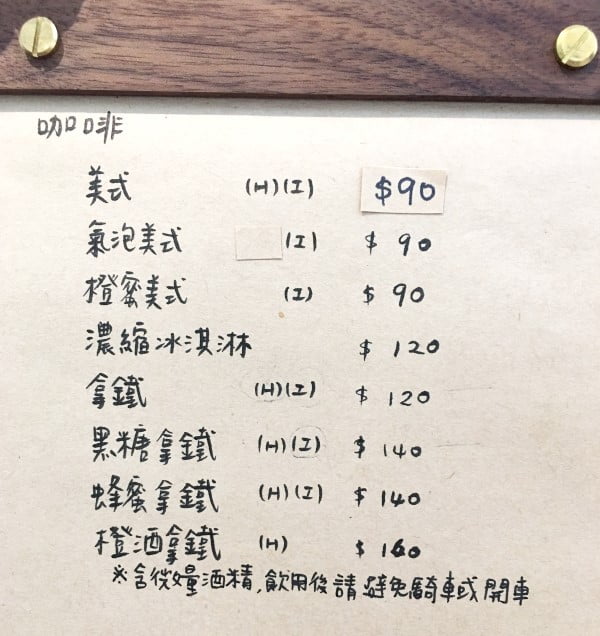 咖啡
美式 (H)(I) $90
氣泡美式 (I) $90
橙蜜美式 (I) $90
濃縮冰淇淋 $120
拿鐵 (H)(I) $120
黑糖拿鐵 (H)(I) $140
蜂蜜拿鐵 (H)(I) $140
橙酒拿鐵 (H) $160
※含微量酒精,飲用後請避免騎車或開車